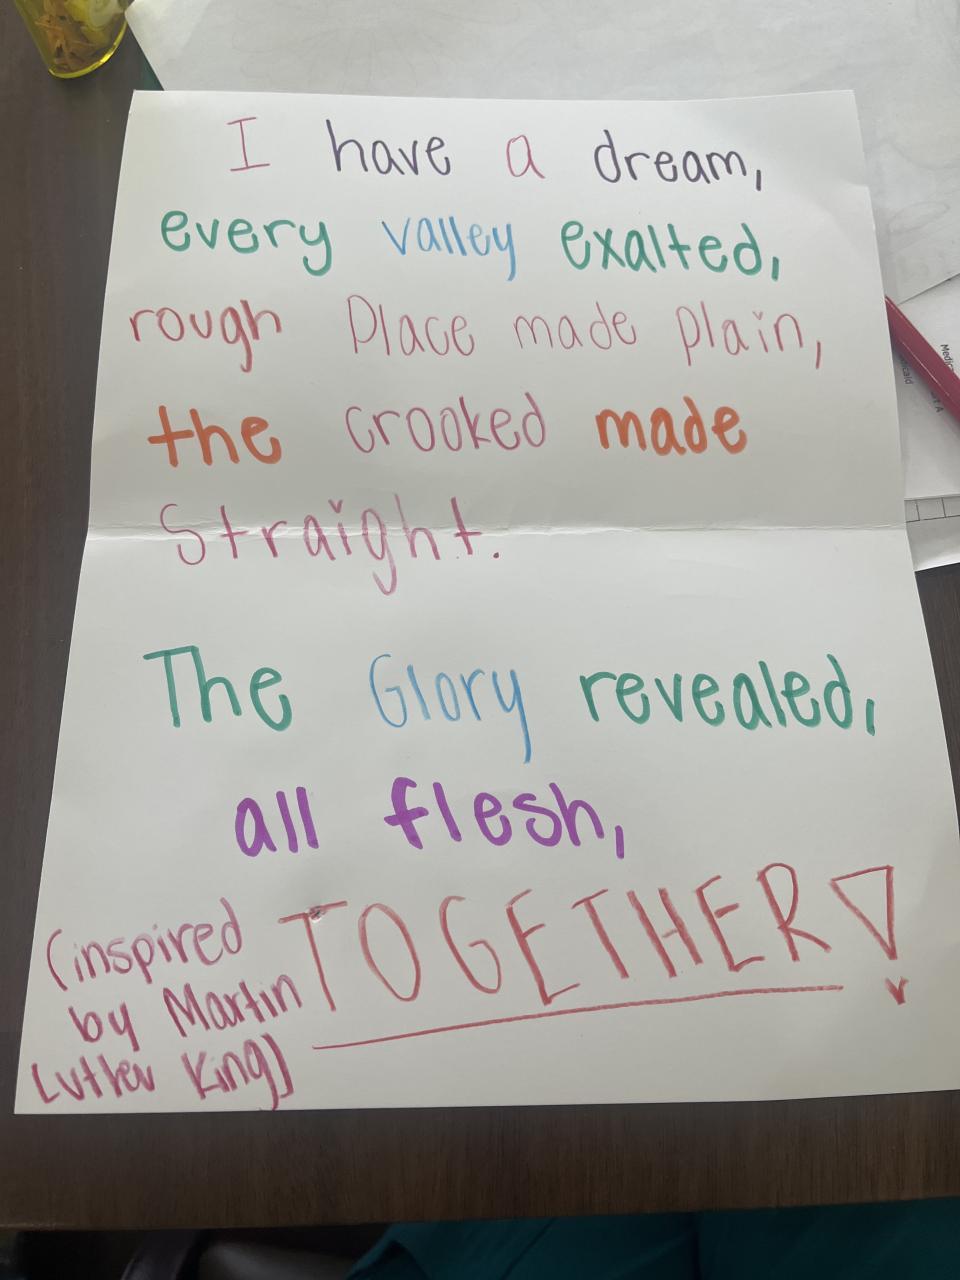 I have a dream,
every valley exalted,
rough Place made plain,
the crooked made
Straight.
The Glory revealed,
all flesh,
TOGETHER!
(inspired
by Martin
Lutler King)